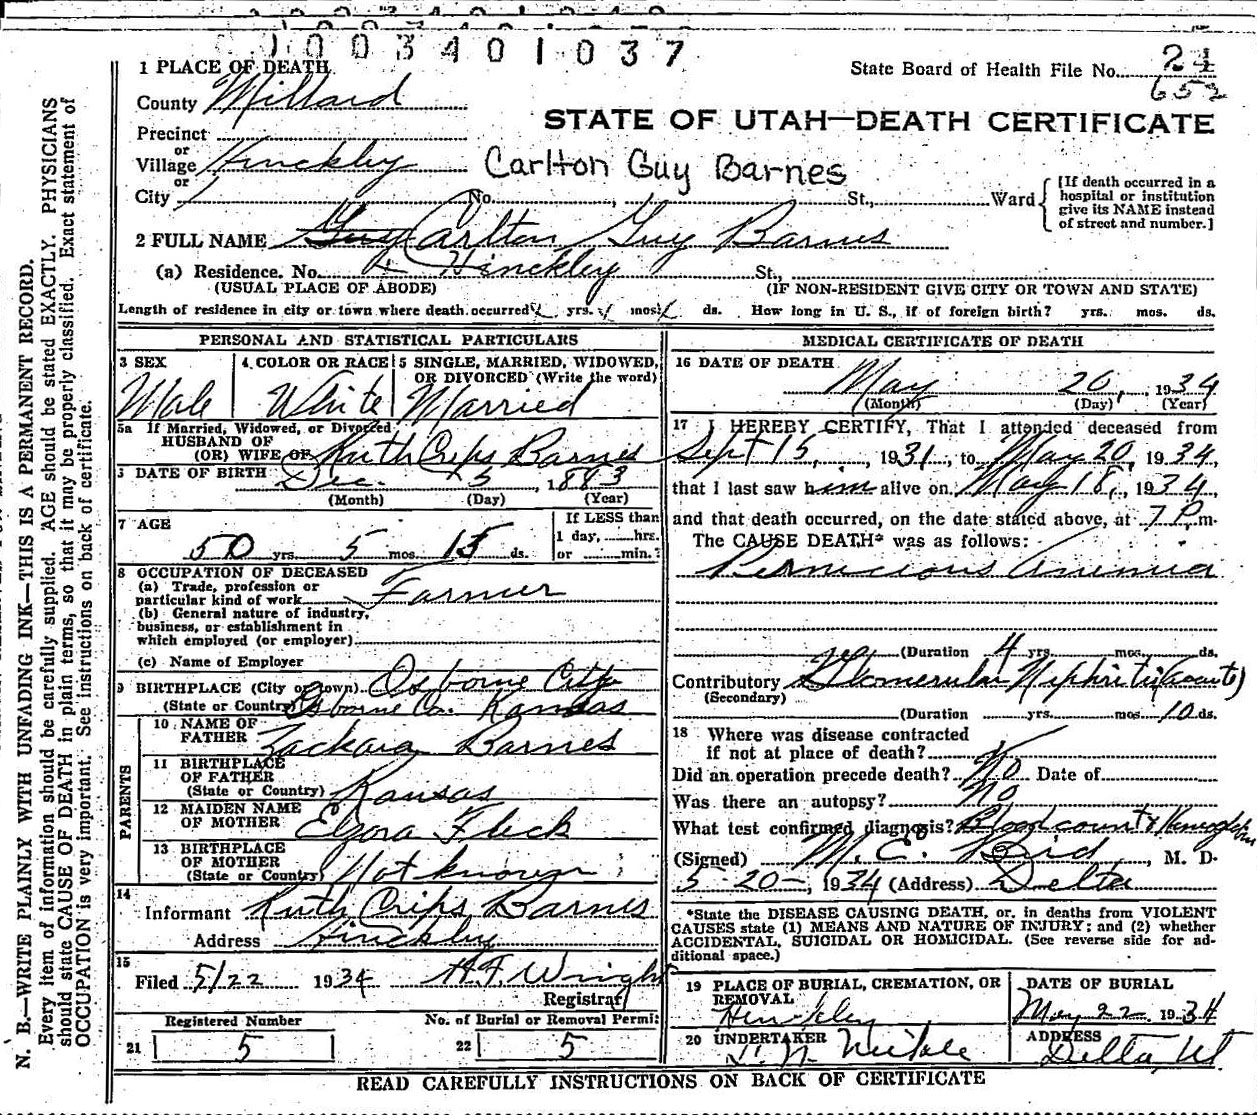 1003401037
1 PLACE OF DEATH
State Board of Health File No. 24
652
County Millard
STATE OF UTAH—DEATH CERTIFICATE
Precinct
or
Village Hinckley
Carlton Guy Barnes
or
City No. , St., Ward
[If death occurred in a
hospital or institution
give its NAME instead
of street and number.]
2 FULL NAME Guy Carlton Guy Barnes
(a) Residence. No. Hinckley St.,
(USUAL PLACE OF ABODE) (IF NON-RESIDENT GIVE CITY OR TOWN AND STATE)
Length of residence in city or town where death occurred yrs. mos. ds. How long in U. S., if of foreign birth? yrs. mos. ds.
PERSONAL AND STATISTICAL PARTICULARS
3 SEX 4 COLOR OR RACE 5 SINGLE, MARRIED, WIDOWED,
OR DIVORCED (Write the word)
Male White Married
5a If Married, Widowed, or Divorced
HUSBAND OF
(OR) WIFE OF Ruth Crips Barnes
DATE OF BIRTH Dec. 5, 1883
(Month) (Day) (Year)
7 AGE
50 yrs. 5 mos. 15 ds.
If LESS than
1 day, hrs.
or min.?
8 OCCUPATION OF DECEASED
(a) Trade, profession or
particular kind of work Farmer
(b) General nature of industry,
business, or establishment in
which employed (or employer)
(c) Name of Employer
9 BIRTHPLACE (City or town) Osborne City
(State or Country) Osborne Co. Kansas
PARENTS
10 NAME OF
FATHER Zackara Barnes
11 BIRTHPLACE
OF FATHER
(State or Country) Kansas
12 MAIDEN NAME
OF MOTHER Elzora Fleck
13 BIRTHPLACE
OF MOTHER
(State or Country) Not known
14
Informant Ruth Crips Barnes
Address Hinckley
15
Filed 5/22 1934 H.F. Wright
Registrar
Registered Number No. of Burial or Removal Permit
21 5 22 5
MEDICAL CERTIFICATE OF DEATH
16 DATE OF DEATH
May 20, 1934
(Month) (Day) (Year)
17 I HEREBY CERTIFY, That I attended deceased from
Sept 15, 1931, to May 20, 1934,
that I last saw him alive on May 18, 1934
and that death occurred, on the date stated above, at 7 P.m.
The CAUSE DEATH* was as follows:
Pernicious Anemia
(Duration 4 yrs. mos. ds.
Contributory Glomerular Nephritis (acute)
(Secondary)
(Duration yrs. mos. 10 ds.
18 Where was disease contracted
if not at place of death?
Did an operation precede death? No Date of
Was there an autopsy? No
What test confirmed diagnosis? Blood count &
(Signed) M. E. Bird, M. D.
5-20-, 1934 (Address) Delta
*State the DISEASE CAUSING DEATH, or, in deaths from VIOLENT
CAUSES state (1) MEANS AND NATURE OF INJURY; and (2) whether
ACCIDENTAL, SUICIDAL OR HOMICIDAL. (See reverse side for ad-
ditional space.)
19 PLACE OF BURIAL, CREMATION, OR
REMOVAL
Hinckley
DATE OF BURIAL
May 22 1934
20 UNDERTAKER
ADDRESS
Delta, Ut
READ CAREFULLY INSTRUCTIONS ON BACK OF CERTIFICATE
N. B.—WRITE PLAINLY WITH UNFADING INK—THIS IS A PERMANENT RECORD.
Every item of information should be carefully supplied. AGE should be stated EXACTLY. PHYSICIANS
should state CAUSE OF DEATH in plain terms, so that it may be properly classified. Exact statement of
OCCUPATION is very important. See instructions on back of certificate.